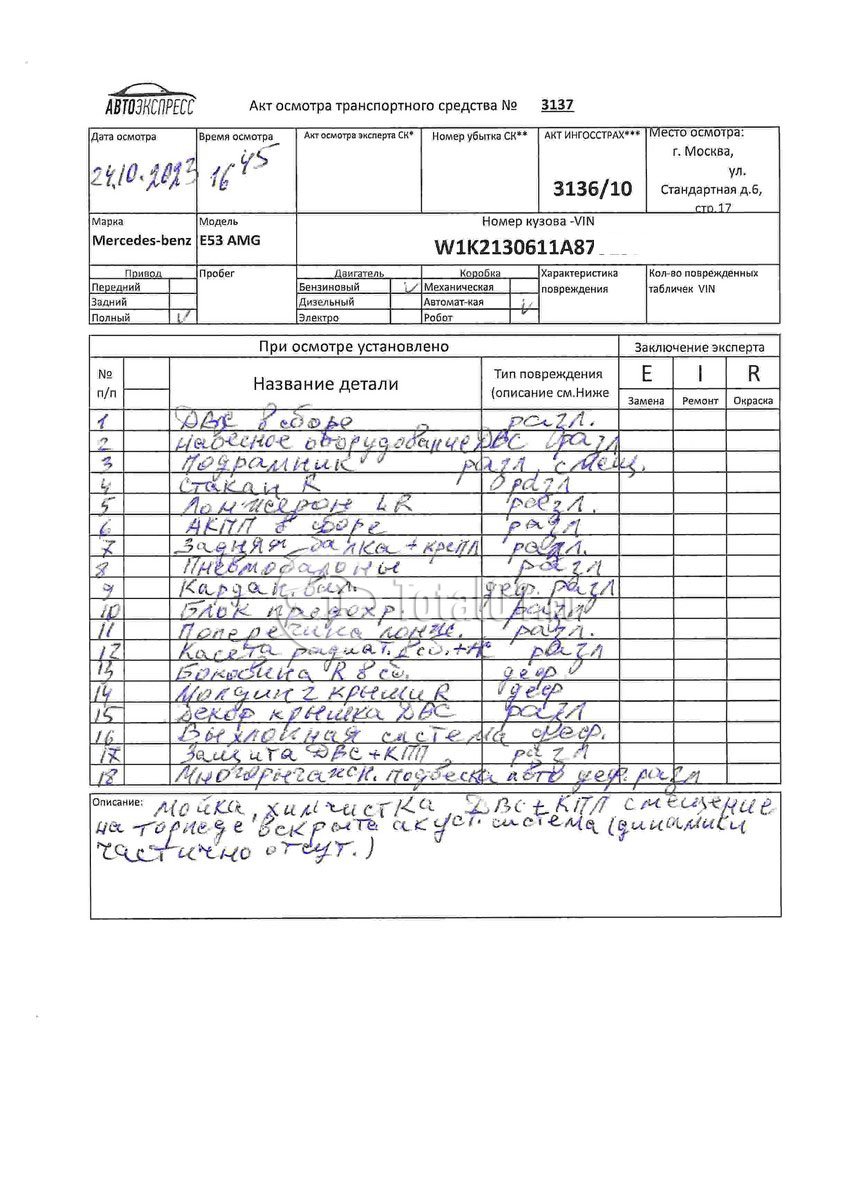 АВТОЭКСПРЕСС
Акт осмотра транспортного средства № 3137
Дата осмотра Время осмотра Акт осмотра эксперта СК* Номер убытка СК** АКТ ИНГОССТРАХ*** Место осмотра:
24.10.2023 16 45 3136/10 г. Москва,
ул.
Стандартная д.6,
стр.17
Марка Модель Номер кузова -VIN
Mercedes-benz E53 AMG W1K2130611A87
Привод Пробег Двигатель Коробка Характеристика повреждения Кол-во поврежденных табличек VIN
Передний Бензиновый V Механическая
Задний Дизельный Автомат-кая V
Полный V Электро Робот
При осмотре установлено Заключение эксперта
№ п/п Название детали Тип повреждения (описание см.Ниже E I R
Замена Ремонт Окраска
1 ДВС в сборе разл.
2 Навесное оборудование ДВС разл
3 Подрамник разл, смещ.
4 Стакан R разл
5 Лонжерон LR разл.
6 АКПП в сборе разл
7 Задняя балка + крепл разл.
8 Пневмобалоны разл
9 Кардан. вал. деф. разл
10 Блок предохр разл
11 Поперечина лонж. разл.
12 Касета радиат. в сб. + АС разл
13 Боковина R в сб. деф
14 Молдинг крыши R деф
15 Декор крышка ДВС разл
16 Выхлопная система деф.
17 Защита ДВС+КПП разл
18 Многорычажн. подвеска авто деф. разл
Описание: Мойка, химчистка ДВС+КПП смещение
на торпеде вскрыта акуст. система (динамики
частично отсут.)
TotalU